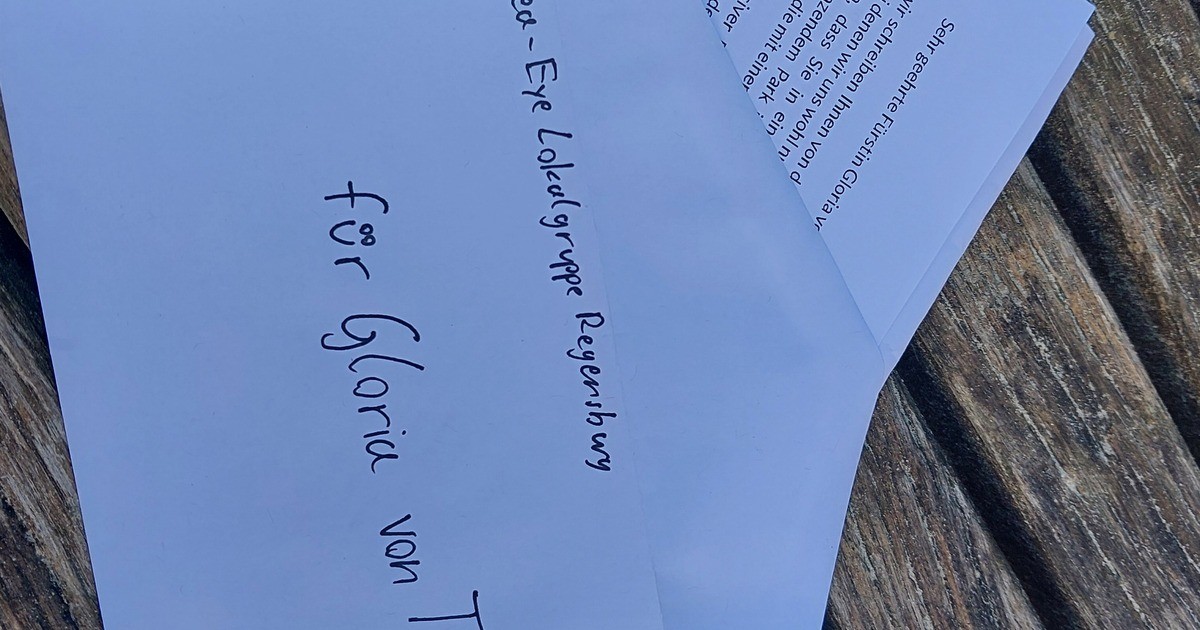 ea-Eye Lokalgruppe Regensburg
für Gloria von T
Sehr geehrte Fürstin Gloria v
wir schreiben Ihnen von d
denen wir uns wohl n
, dass Sie in ein
zendem Park
die mit einer
iver